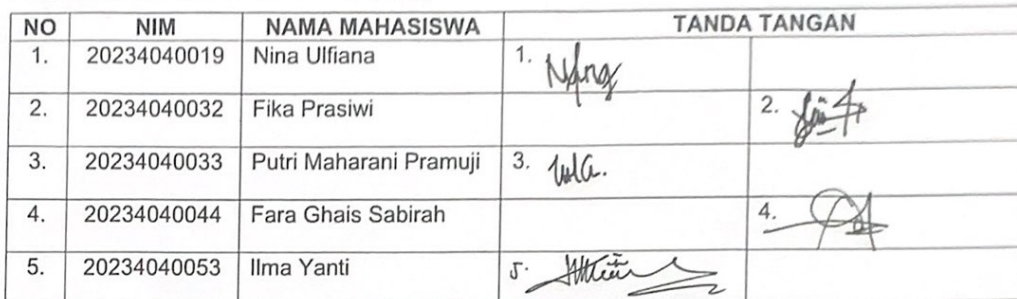 NO NIM NAMA MAHASISWA TANDA TANGAN
1. 20234040019 Nina Ulfiana 1.
2. 20234040032 Fika Prasiwi 2.
3. 20234040033 Putri Maharani Pramuji 3.
4. 20234040044 Fara Ghais Sabirah 4.
5. 20234040053 Ilma Yanti 5.